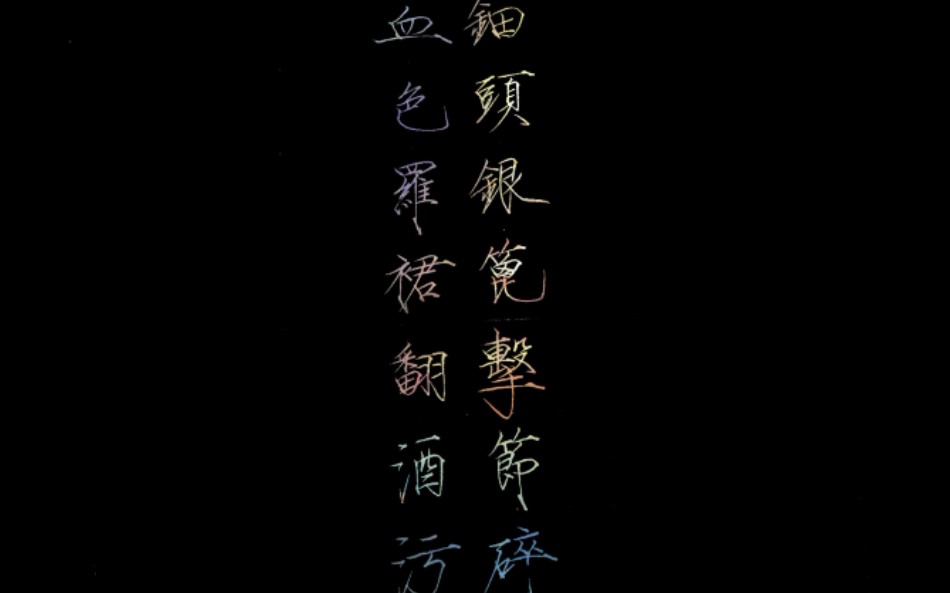 鈿頭銀篦擊節碎
血色羅裙翻酒污